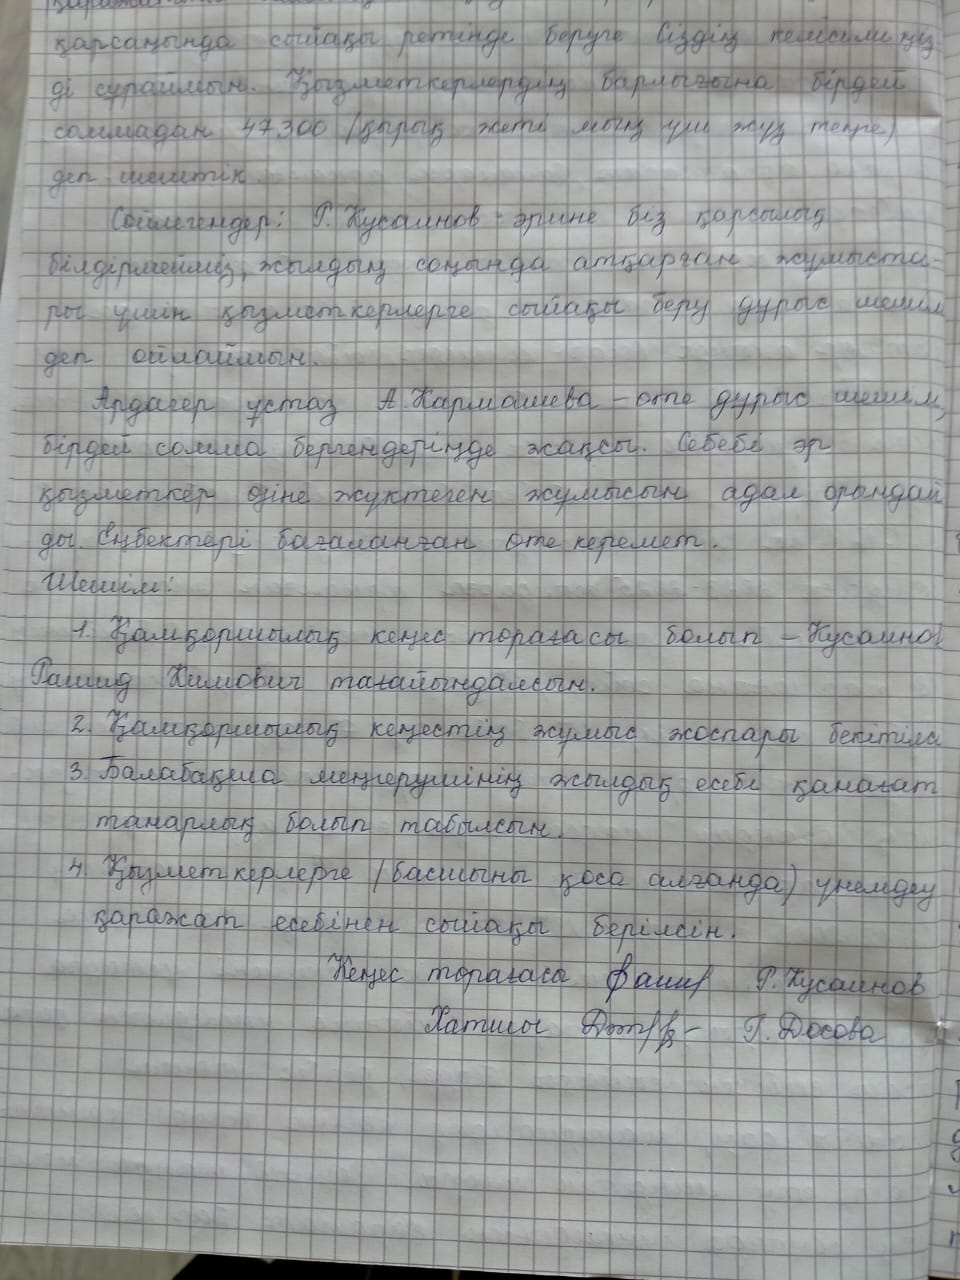 қарсаңында сыйақы ретінде беруге Сіздің келісіміңіз
ді сұраймын. Қызметкерлердің барлығына бірдей
соммадан 47300 /қырық жеті мың үш жүз теңге)
деп шештік.
Сөйлегендер: Р. Кусаинов - әрине біз қарсылық
білдірмейміз, жылдың соңында атқарған жұмыста-
ры үшін қызметкерлерге сыйақы беру дұрыс шешім
деп ойлаймын.
Ардагер ұстаз А. Кармашева - өте дұрыс шешім,
бірдей сомма бергендеріңде жақсы. Себебі әр
қызметкер өзіне жүктеген жұмысын адал орындай
ды. Еңбектері бағаланған өте керемет.
Шешім:
1. Қамқоршылық кеңес төрағасы болып - Кусаинов
Рашид Химович тағайындалсын.
2. Қамқоршылық кеңестің жұмыс жоспары бекітілс
3. Балабақша меңгерушінің жылдық есебі қанағат
танарлық болып табылсын.
4. Қызметкерлерге /басшыны қоса алғанда) үнемдеу
қаражат есебінен сыйақы берілсін.
Кеңес төрағасы Р. Кусаинов
Хатшы Г. Досова